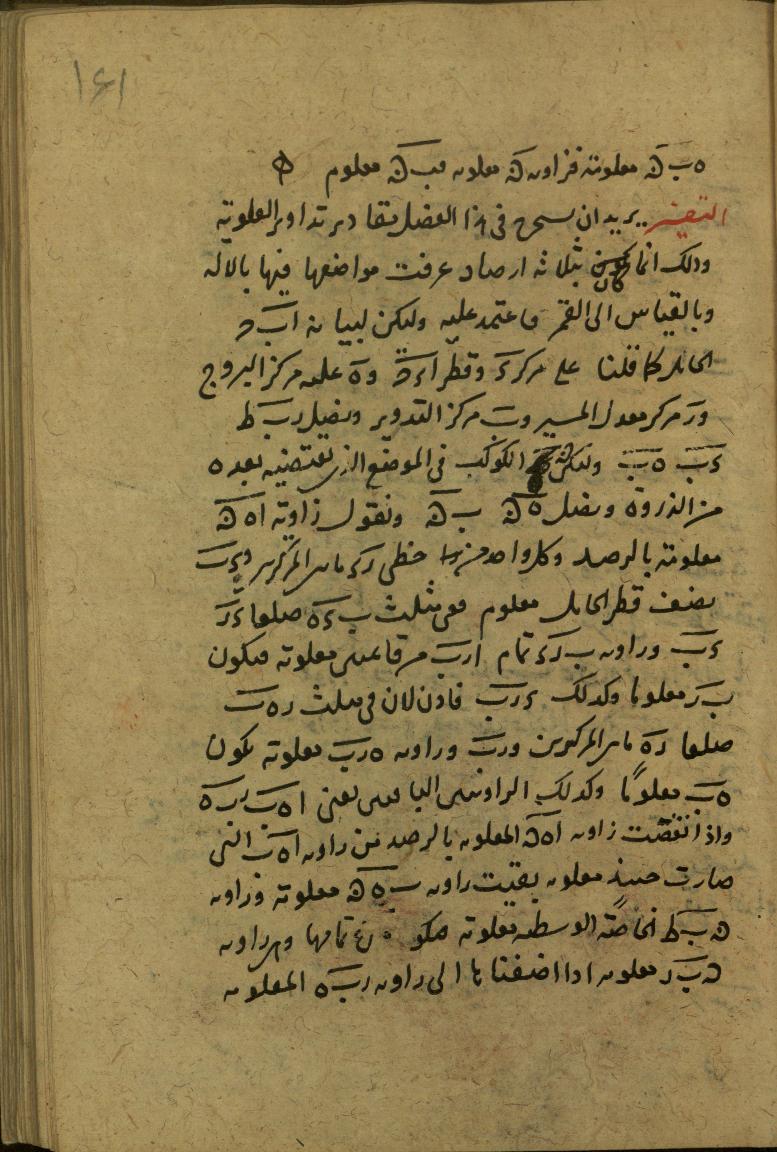 ١٤١
ه ب ك معلومة فزاوية ك معلومة فب ك معلوم
التفسير يريد ان يستخرج في هذا الفصل مقادير تداوير العلوية
وذلك انما يكون بثلاثة ارصاد عرفت مواضعها فيها بالالة
وبالقياس الى القمر فاعتمد عليه وليكن لبيانه ا ب ح
الحامل كما قلنا على مركز ء وقطر ا ء ح و ه عليه مركز البروج
و ر مركز معدل المسير و ب مركز التدوير ونصل ر ب ط
ء ب ه ب وليكن الكوكب في الموضع الذي يقتضيه بعده
من الذروة ونصل ه ك ب ك ونقول زاوية ا ه ك
معلومة بالرصد وكل واحد من خطي ر ء ما بين المركزين و ء ب
نصف قطر الحامل معلوم ففي مثلث ب ء ر ضلعا ء ر
ء ب وزاوية ب ر ء تمام ا ر ب من قائمتين معلومة فيكون
ب ر معلوما وكذلك ء ر ب فاذن لان في مثلث ر ه ب
ضلعا ر ه ما بين المركزين و ر ب وزاوية ه ر ب معلومة يكون
ه ب معلوما وكذلك الزاويتين الباقيتين يعني ا ه ب ر ب ه
واذا نقصت زاوية ا ه ك المعلومة بالرصد من زاوية ا ه ب التي
صارت حينئذ معلومة بقيت زاوية ب ه ك معلومة وزاوية
ك ب ط الخاصة الوسطى معلومة فيكون تمامها وهي زاوية
ك ب ر معلومة اذا اضفناها الى زاوية ر ب ه المعلومة